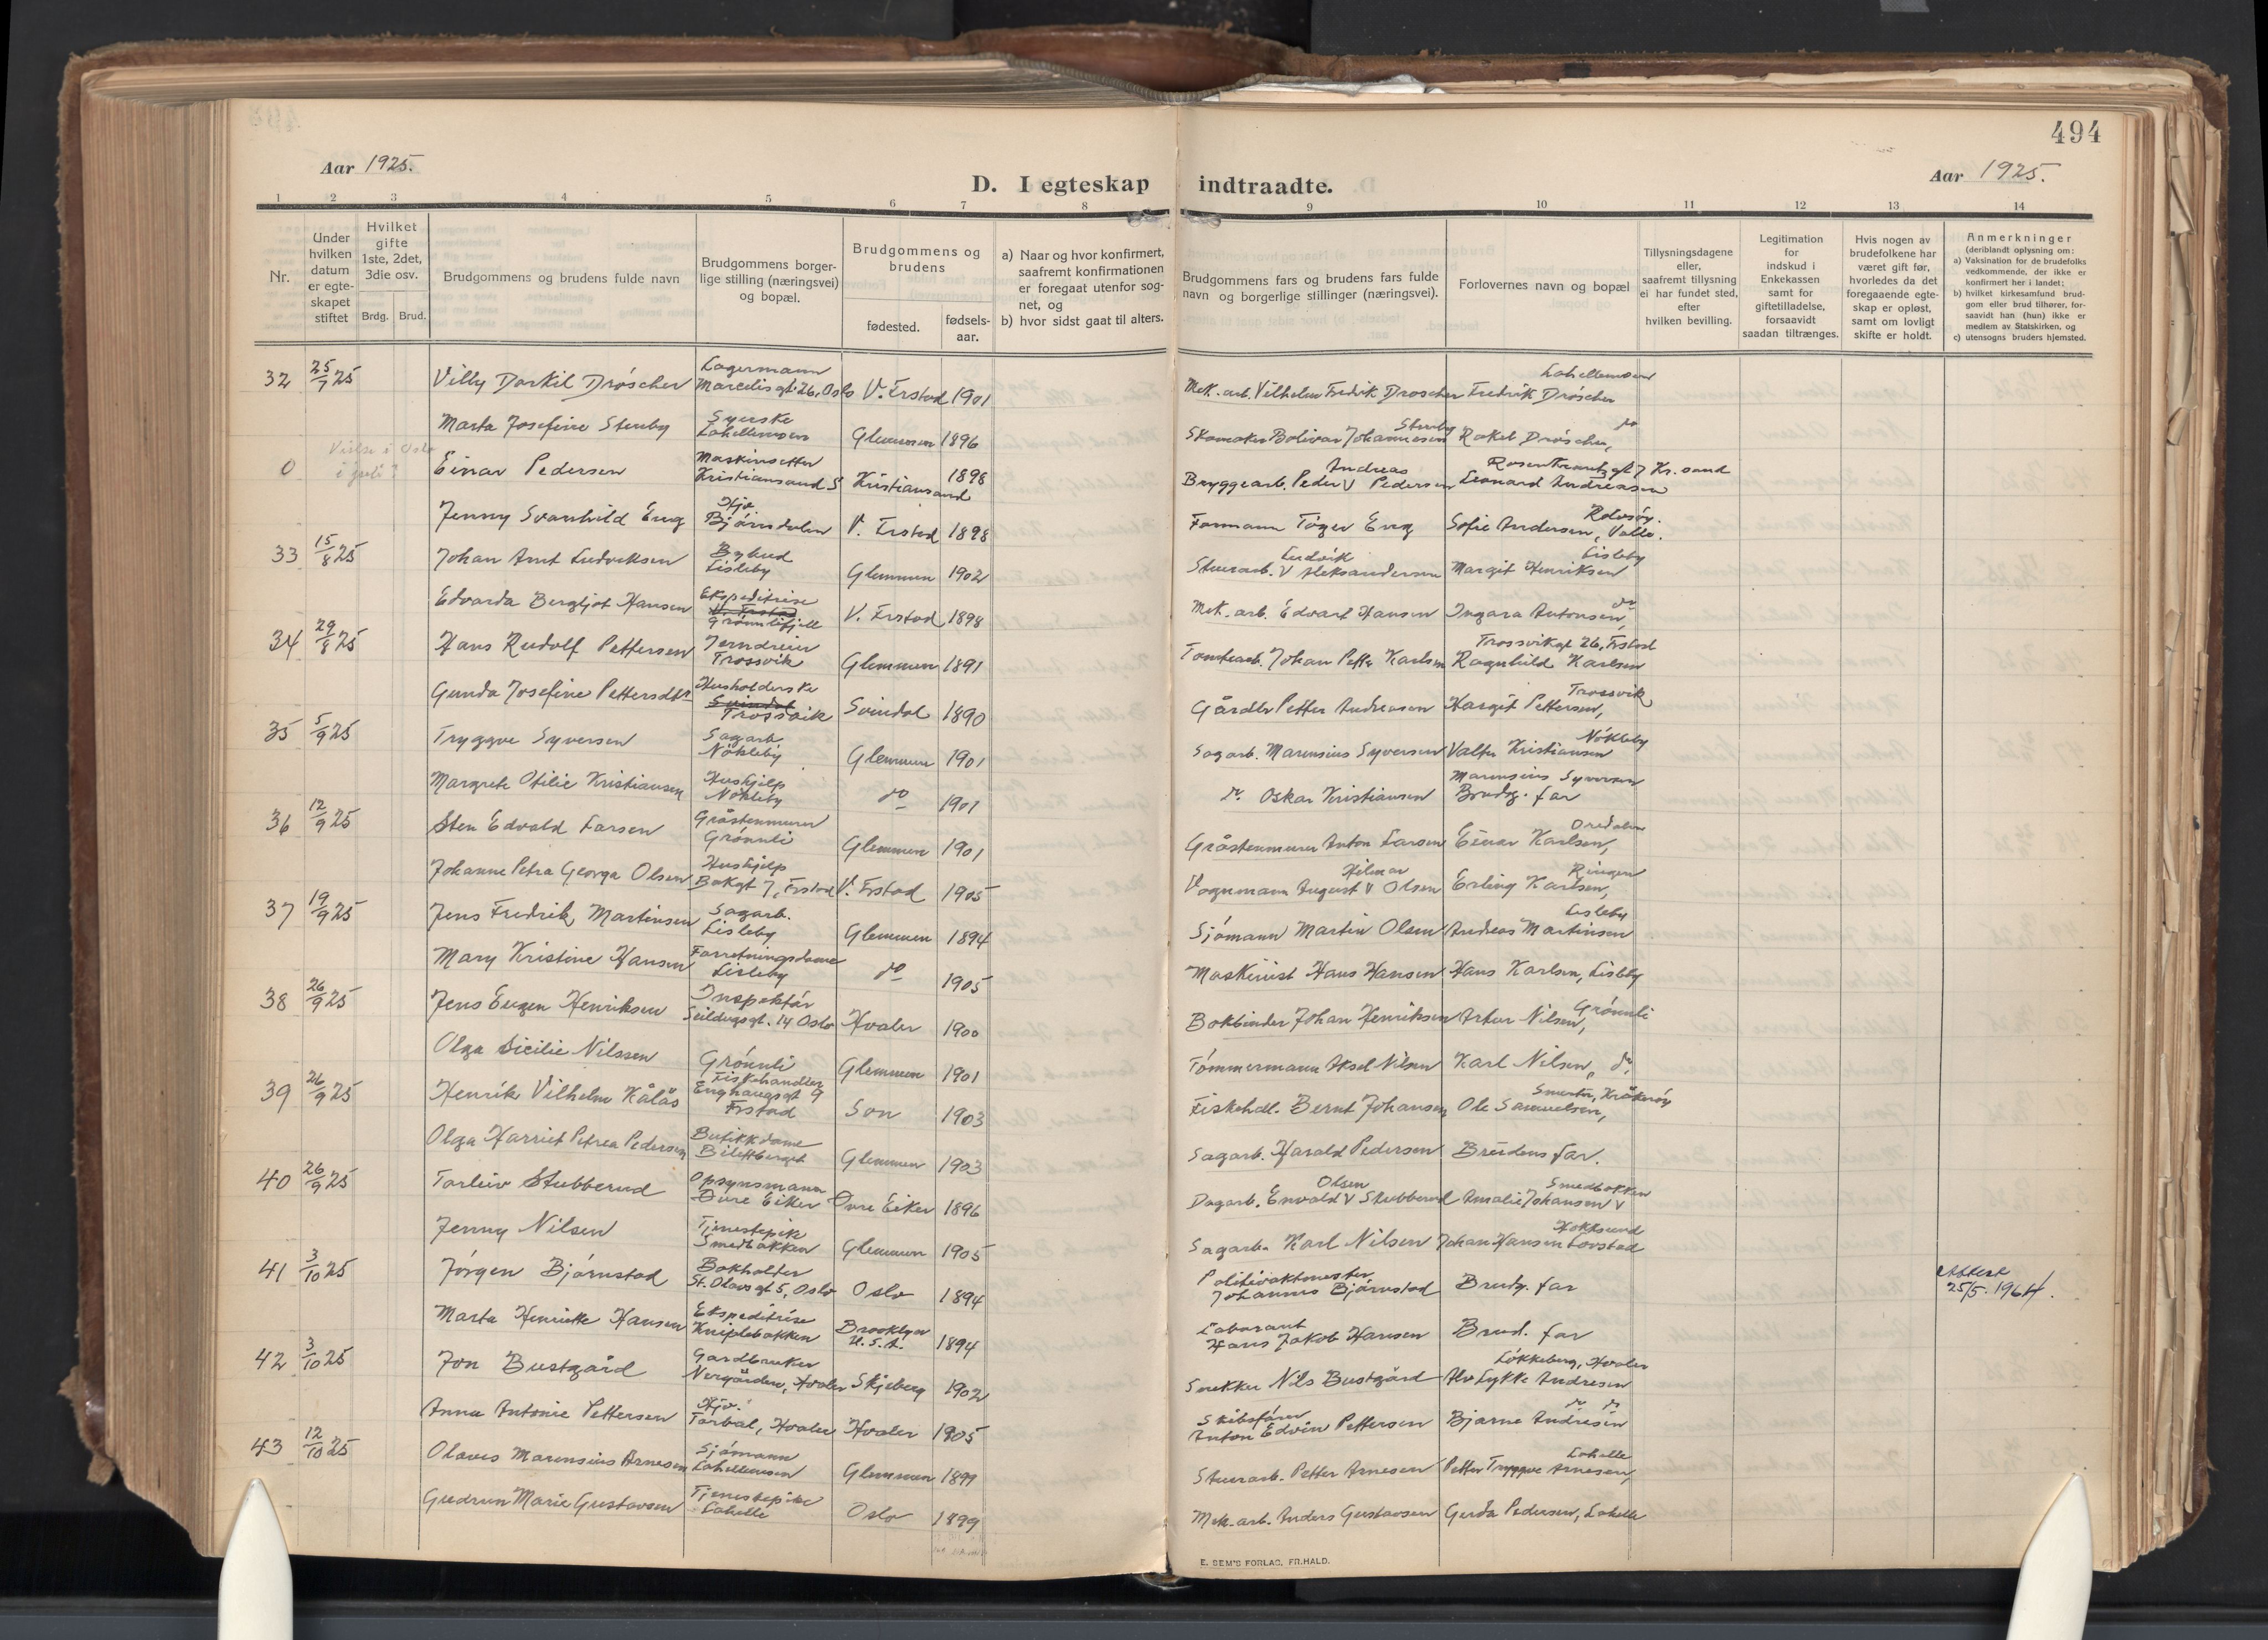 494
Aar 1925.
D. I egteskap indtraadte.
Aar 1925.
1 2 3 4 5 6 7 8 9 10 11 12 13 14
Nr.
Under hvilken datum er egte-skapet stiftet
Hvilket gifte 1ste, 2det, 3die osv.
Brdg. Brud.
Brudgommens og brudens fulde navn
Brudgommens borger-lige stilling (næringsvei) og bopæl.
Brudgommens og brudens
fødested.
fødsels-aar.
a) Naar og hvor konfirmert, saafremt konfirmationen er foregaat utenfor sog-net, og
b) hvor sidst gaat til alters.
Brudgommens fars og brudens fars fulde navn og borgerlige stillinger (næringsvei).
Forlovernes navn og bopæl
Tillysningsdagene eller, saafremt tillysning ei har fundet sted, efter hvilken bevilling.
Legitimation for indskud i Enkekassen samt for giftetilladelse, forsaavidt saadan tiltrænges.
Hvis nogen av brudefolkene har været gift før, hvorledes da det foregaaende egte-skap er opløst, samt om lovligt skifte er holdt.
Anmerkninger
(deriblandt oplysning om:
a) Vaksination for de brudefolks vedkommende, der ikke er konfirmert her i landet;
b) hvilket kirkesamfund brud-gom eller brud tilhører, for-saavidt han (hun) ikke er medlem av Statskirken, og
c) utensogns bruders hjemsted.
32 25/7 25 Villy Dorkil Dröscher Lagermann Marcelisgt. 26, Oslo V. Frstad 1901 Mek. arb. Vilhelm Fredrik Dröscher Fredrik Dröscher Lahellemoen
Marta Josefine Stenby Syerske Lahellemoen Glemmen 1896 Skomaker Bolivar Johannesen Stenby Rakel Dröscher, do
0 Vielse i Oslo i juli? Einar Pedersen Maskinsetter Kristiansand S Kristiansand 1898 Bryggearb. Peder V Pedersen Andreas Leonard Andreasen Rosenkrantzgt 7 Kr. sand
Jenny Svanhild Eng Hjv Björndalen V. Frstad 1898 Formann Töger Eng Sofie Andersen, Valle. Rolvsöy.
33 15/8 25 Johan Arnt Ludviksen Bybud Lisleby Glemmen 1902 Stuerarb. V Aleksandersen Ludvik Margit Henriksen Lisleby
Edvarda Bergljot Hansen Ekspeditrise V. Frstad Grönnlifjell V. Frstad 1898 Mek. arb. Edvart Hansen Ingara Antonsen, do
34 29/8 25 Hans Rudolf Pettersen Jerndreier Trossvik Glemmen 1891 Tomtearb. Johan Petter Karlsen Ragnhild Karlsen Trossvikgt 26, Frstad
Gunda Josefine Pettersdtr Husholderske Svindal Trossvik Svindal 1890 Gårdbr Petter Andreasen Margit Pettersen, Trossvik
35 5/9 25 Tryggve Syversen Sagarb Nökleby Glemmen 1901 Sagarb. Marensius Syversen Valter Kristiansen Nökleby
Margrete Otilie Kristiansen Hushjelp Nökleby do 1901 do Oskar Kristiansen Marensius Syversen Brudg. far
36 12/9 25 Sten Edvald Larsen Gråstenmurer Grönnli Glemmen 1901 Gråstenmurer Anton Larsen Einar Karlsen, Oredalen
Johanne Petra Georga Olsen Hushjelp Bakgt 7, Frstad V. Frstad 1905 Vognmann August V Olsen Hilmar Erling Karlsen, Ringen
37 19/9 25 Jens Fredrik Martinsen Sagarb. Lisleby Glemmen 1894 Sjömann Martin Olsen Andreas Martinsen Lisleby
Mary Kristine Hansen Forretningsdame Lisleby do 1905 Maskinist Hans Hansen Hans Karlsen, Lisleby
38 26/9 25 Jens Eugen Henriksen Inspektör Seildugsgt. 14 Oslo Hvaler 1900 Bokbinder Johan Henriksen Artur Nilsen, Grönnli
Olga Sicilie Nilssen Grönnli Glemmen 1901 Tömmermann Aksel Nilsen Karl Nilsen, do
39 26/9 25 Henrik Vilhelm Kålås Fiskehandler Enghaugsgt 9 Frstad Son 1903 Fiskehdl. Bernt Johansen Ole Samuelsen, Smerta, Kråkeröy
Olga Harriet Petrea Pedersen Butikkdame Bilettberget Glemmen 1903 Sagarb. Harald Pedersen Brudens far.
40 26/9 25 Torleiv Stubberud Opsynsmann Övre Eiker Övre Eiker 1896 Dagarb. Envald V Stubberud Olsen Amalie Johansen V Smedbakken
Jenny Nilsen Tjenestepik Smedbakken Glemmen 1905 Sagarb. Karl Nilsen Johan Hansen Lovstad Hokksund
41 3/10 25 Jörgen Björnstad Bokholder St. Olavsgt 5, Oslo Oslo 1894 Politivaktmester Johannes Björnstad Brudg. far Attest 25/5. 1964.
Marta Henriette Hansen Ekspeditrise Kniplebakken Brooklyn U.S.A. 1894 Laborant Hans Jakob Hansen Brud. far
42 3/10 25 Jon Bustgård Gardbruker Nergården, Hvaler Skjeberg 1902 Snekker Nils Bustgård Alv Lykke Andresen Lökkeberg, Hvaler
Anna Antonie Pettersen Hjv. Tarbal, Hvaler Hvaler 1905 Skibsförer Anton Edvin Pettersen Bjarne Andresen do do
43 12/10 25 Olaves Marensius Arnesen Sjömann Lahellemoen Glemmen 1899 Stuerarb. Petter Arnesen Petter Tryggve Arnesen, Lahelle
Gudrun Marie Gustavsen Tjenestepike Lahelle Oslo 1899 Mek. arb. Anders Gustavsen Gerda Pedersen, Lahelle
E. SEM'S FORLAG, FR.HALD.